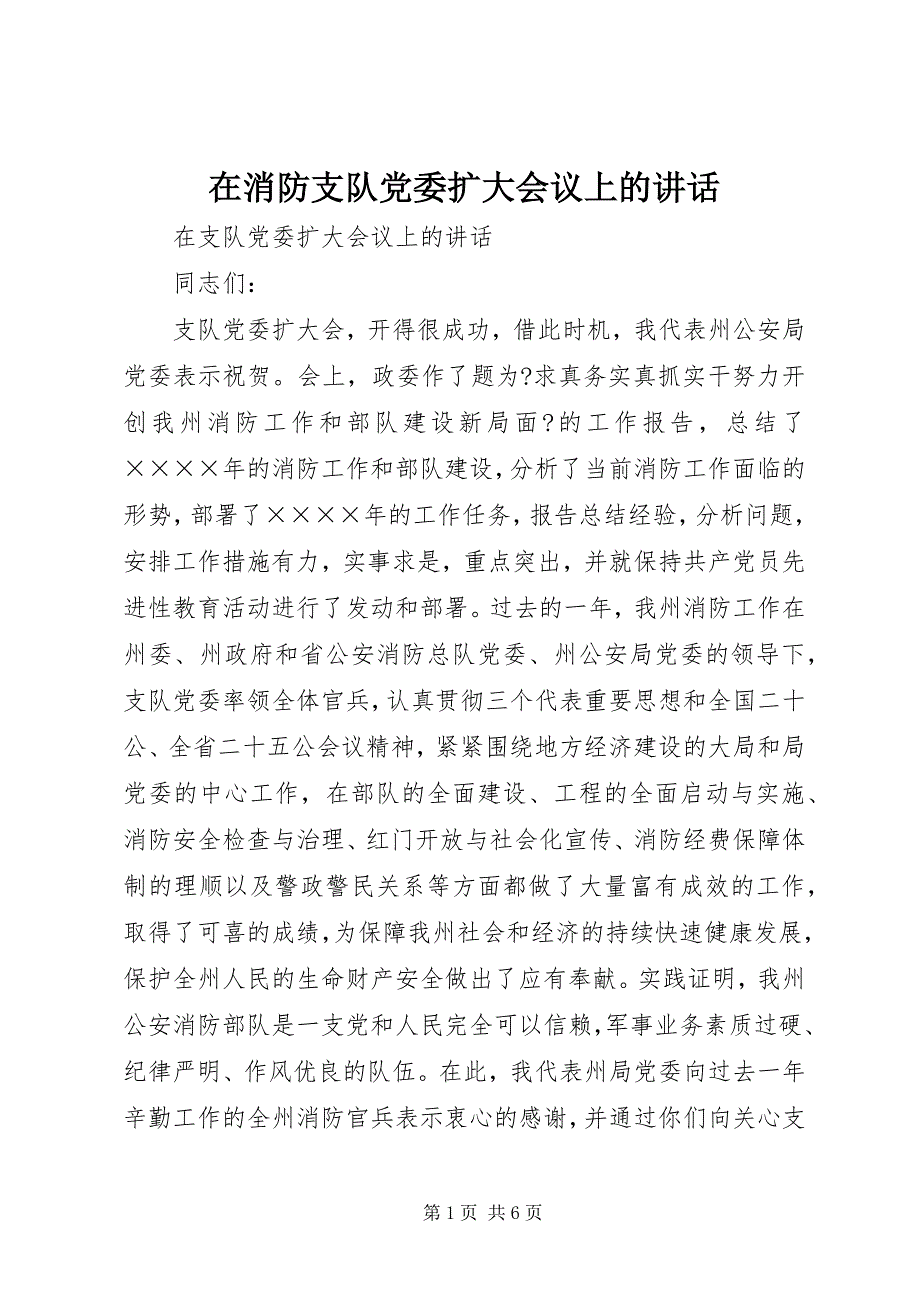 在消防支队党委扩大会议上的讲话
在支队党委扩大会议上的讲话
同志们：
支队党委扩大会，开得很成功，借此时机，我代表州公安局
党委表示祝贺。会上，政委作了题为?求真务实真抓实干努力开
创我州消防工作和部队建设新局面?的工作报告，总结了
××××年的消防工作和部队建设，分析了当前消防工作面临的
形势，部署了××××年的工作任务，报告总结经验，分析问题，
安排工作措施有力，实事求是，重点突出，并就保持共产党员先
进性教育活动进行了发动和部署。过去的一年，我州消防工作在
州委、州政府和省公安消防总队党委、州公安局党委的领导下，
支队党委率领全体官兵，认真贯彻三个代表重要思想和全国二十
公、全省二十五公会议精神，紧紧围绕地方经济建设的大局和局
党委的中心工作，在部队的全面建设、工程的全面启动与实施、
消防安全检查与治理、红门开放与社会化宣传、消防经费保障体
制的理顺以及警政警民关系等方面都做了大量富有成效的工作，
取得了可喜的成绩，为保障我州社会和经济的持续快速健康发展，
保护全州人民的生命财产安全做出了应有奉献。实践证明，我州
公安消防部队是一支党和人民完全可以信赖，军事业务素质过硬、
纪律严明、作风优良的队伍。在此，我代表州局党委向过去一年
辛勤工作的全州消防官兵表示衷心的感谢，并通过你们向关心支
第 1 页 共 6 页